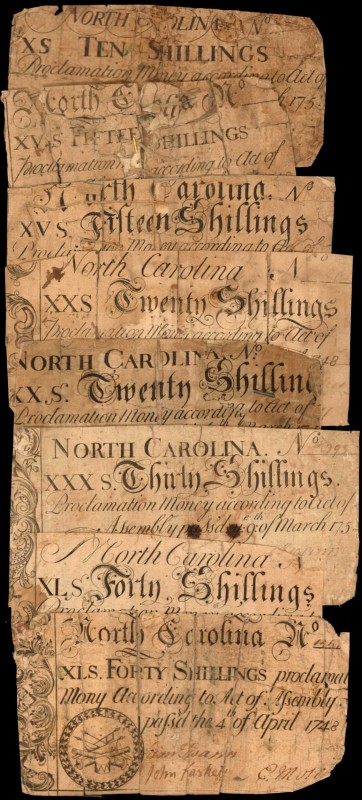 NORTH CAROLINA No
XS TEN SHILLINGS
Proclamation Money according to Act of
North No 175
XVS FIFTEEN SHILLINGS
Proclamation according to Act of
North Carolina. No
XVS Fifteen Shillings
Money according to Act of
North Carolina N
XXS Twenty Shillings
Proclamation Money according to Act of
NORTH CAROLINA. No
XX.S. Twenty Shillin
Proclamation Mony accord to Act of
NORTH CAROLINA. No
XXXS. Thirty Shillings.
Proclamation Money according to Act of
Assembly passd 9th of March 175
North Carolina N
XLS. Forty Shillings
North Carolina No
XLS. FORTY SHILLINGS proclamat
Mony According to Act of Assembly
pass'd the 4th of April 1748
John